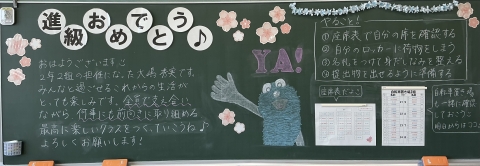 進級おめでとう♪
おはようございます！
2年2組の担任になった大嶋秀実です。
みんなと過ごせるこれからの生活が
とっても楽しみです。全員で支え合い
ながら、何事にも前向きに取り組める
最高に楽しいクラスをつくっていこうね♪
よろしくお願いします！
YA!
やること！
①座席表で自分の席を確認する
②自分のロッカーに荷物をしまう
③名札をつけ身だしなみを整える
④提出物を出せるように準備する
座席表だよ
自転車置き場
も一緒に確認
しておこう
明日からはココ